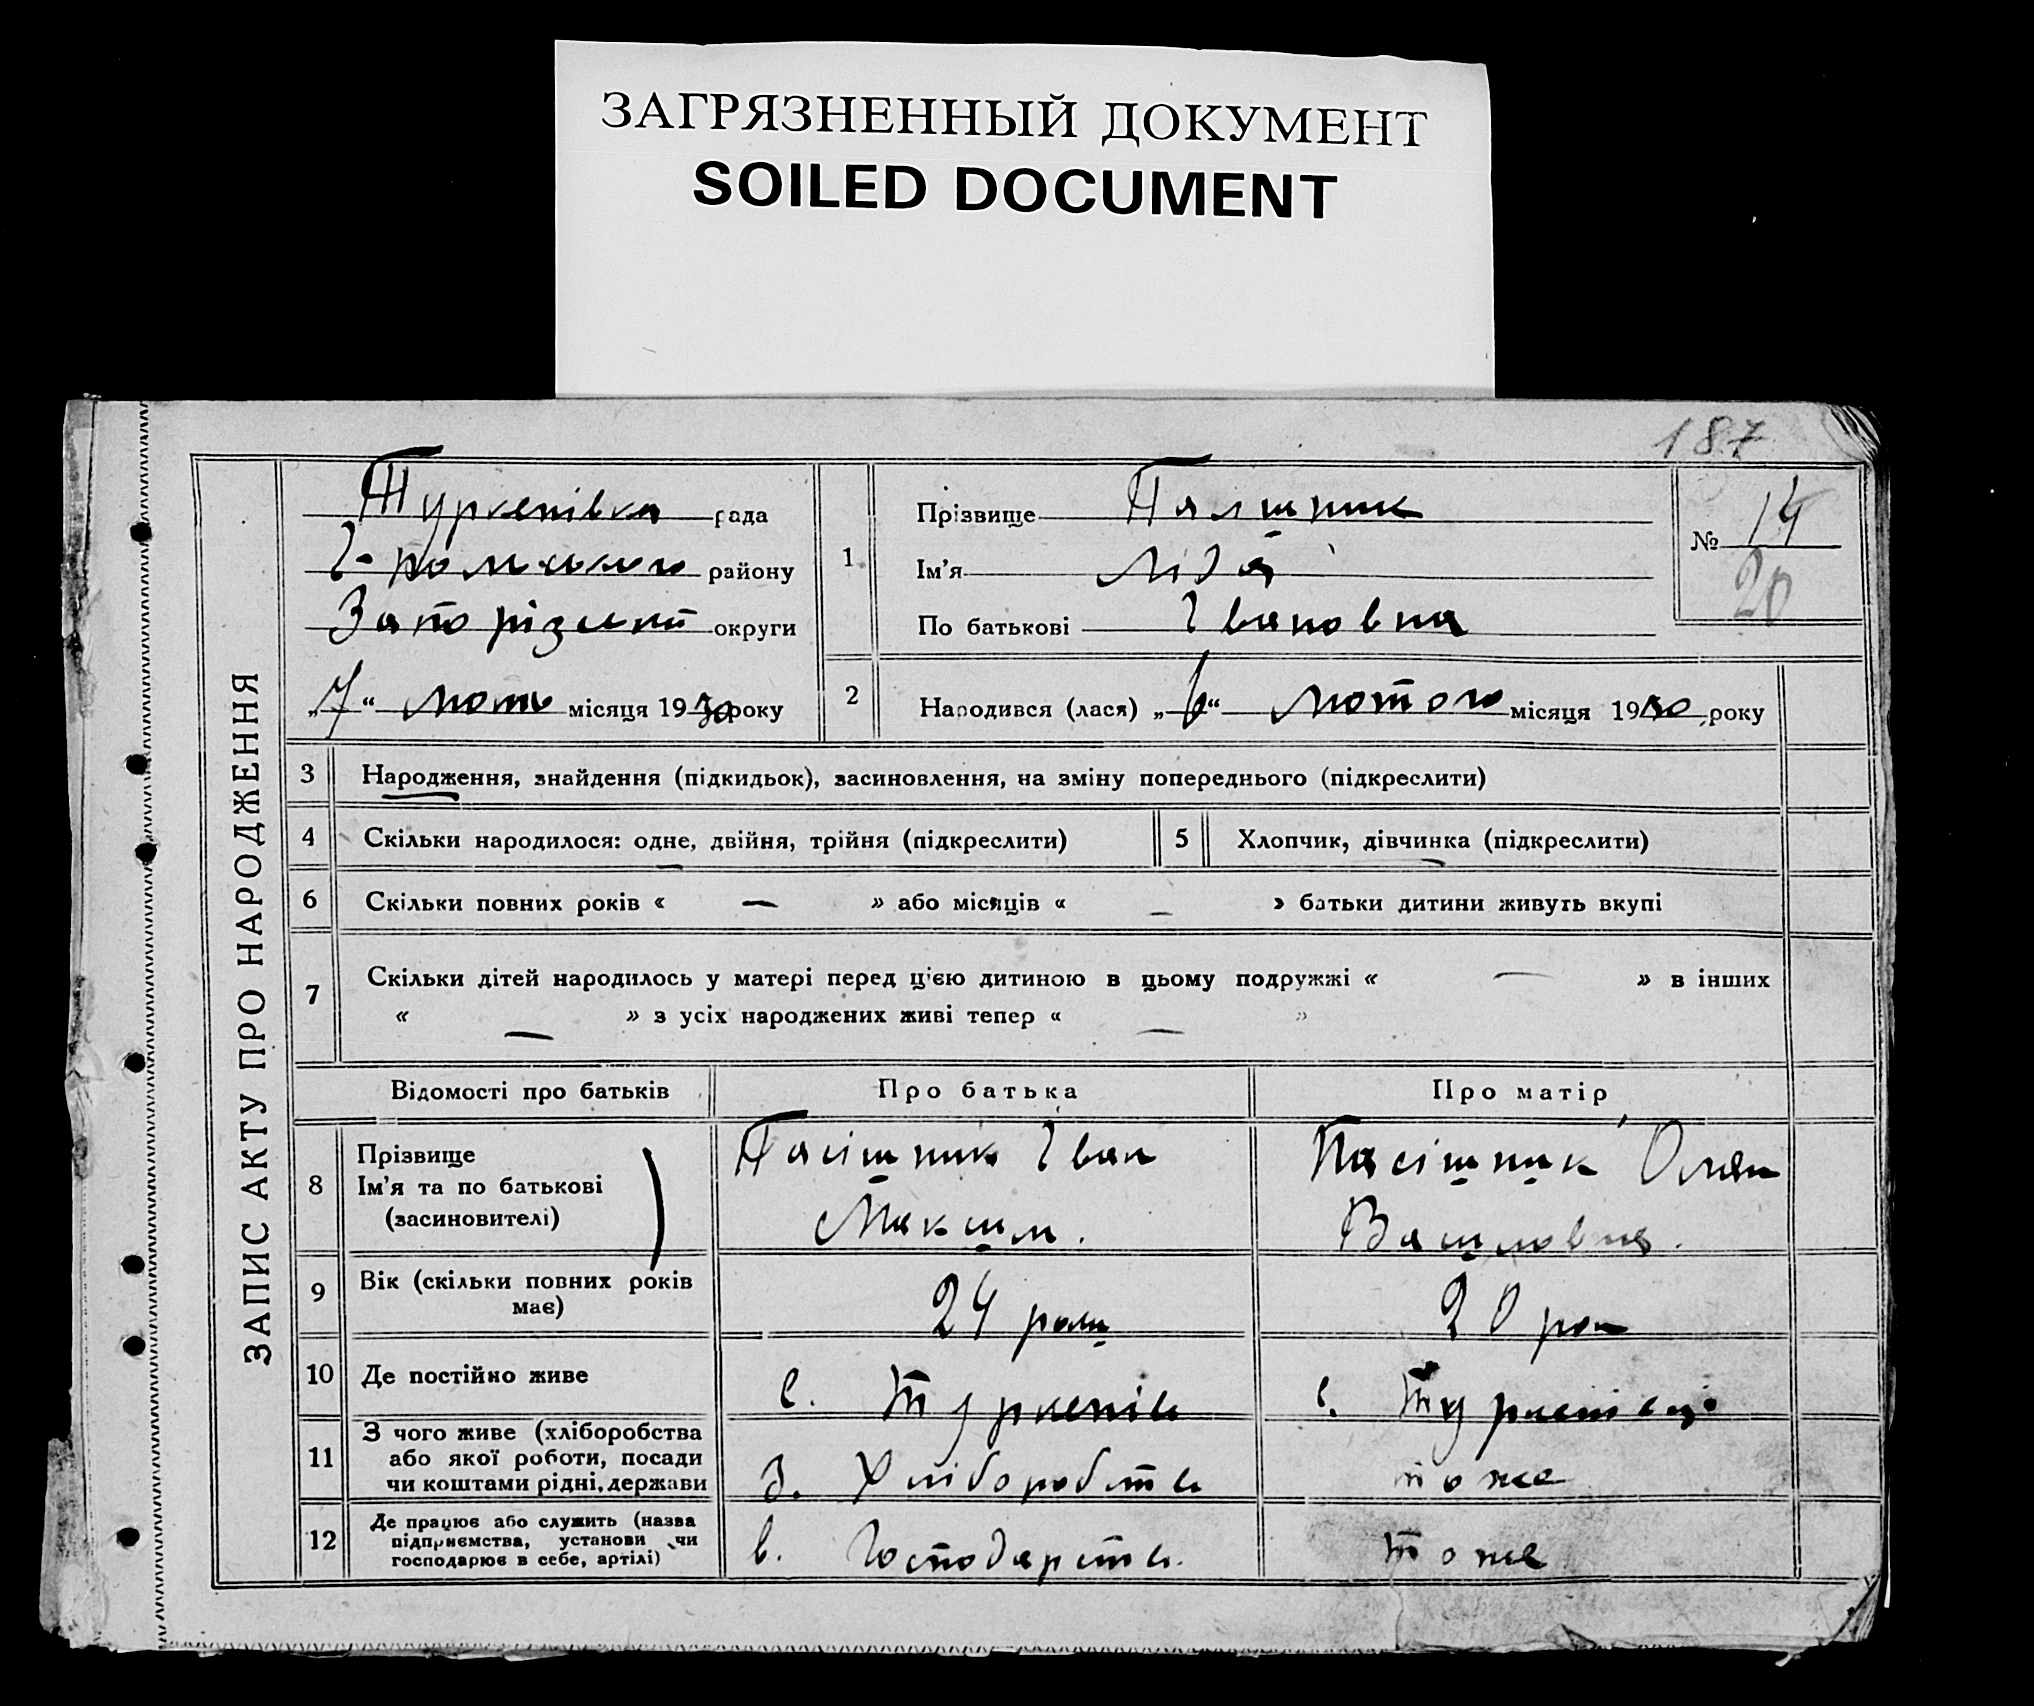 ЗАГРЯЗНЕННЫЙ ДОКУМЕНТ
SOILED DOCUMENT
187
ЗАПИС АКТУ ПРО НАРОДЖЕННЯ
Туркенівка рада
району
округи
„7“ місяця 1930 року
1
Прізвище
Ім'я Ліда
По батькові Івановна
№ 14
20
2
Народився (лася) „6“ лютого місяця 1930 року
3 Народження, знайдення (підкидьок), засиновлення, на зміну попереднього (підкреслити)
4 Скільки народилося: одне, двійня, трійня (підкреслити)
5 Хлопчик, дівчинка (підкреслити)
6 Скільки повних років « — » або місяців « — » батьки дитини живуть вкупі
7 Скільки дітей народилось у матері перед ц'єю дитиною в цьому подружжі « — » в інших
« — » з усіх народжених живі тепер « — »
Відомості про батьків
Про батька
Про матір
8 Прізвище
Ім'я та по батькові
(засиновителі)
Пасішник Іван
Максим.
Пасішник
9 Вік (скільки повних років
має)
24 роки
20 рок
10 Де постійно живе
с. Туркенів
с. Туркенівці
11 З чого живе (хліборобства
або якої роботи, посади
чи коштами рідні, держави
З. Хліборобств
тоже
12 Де працює або служить (назва
підприємства, установи чи
господарює в себе, артілі)
в. Господарств.
тоже